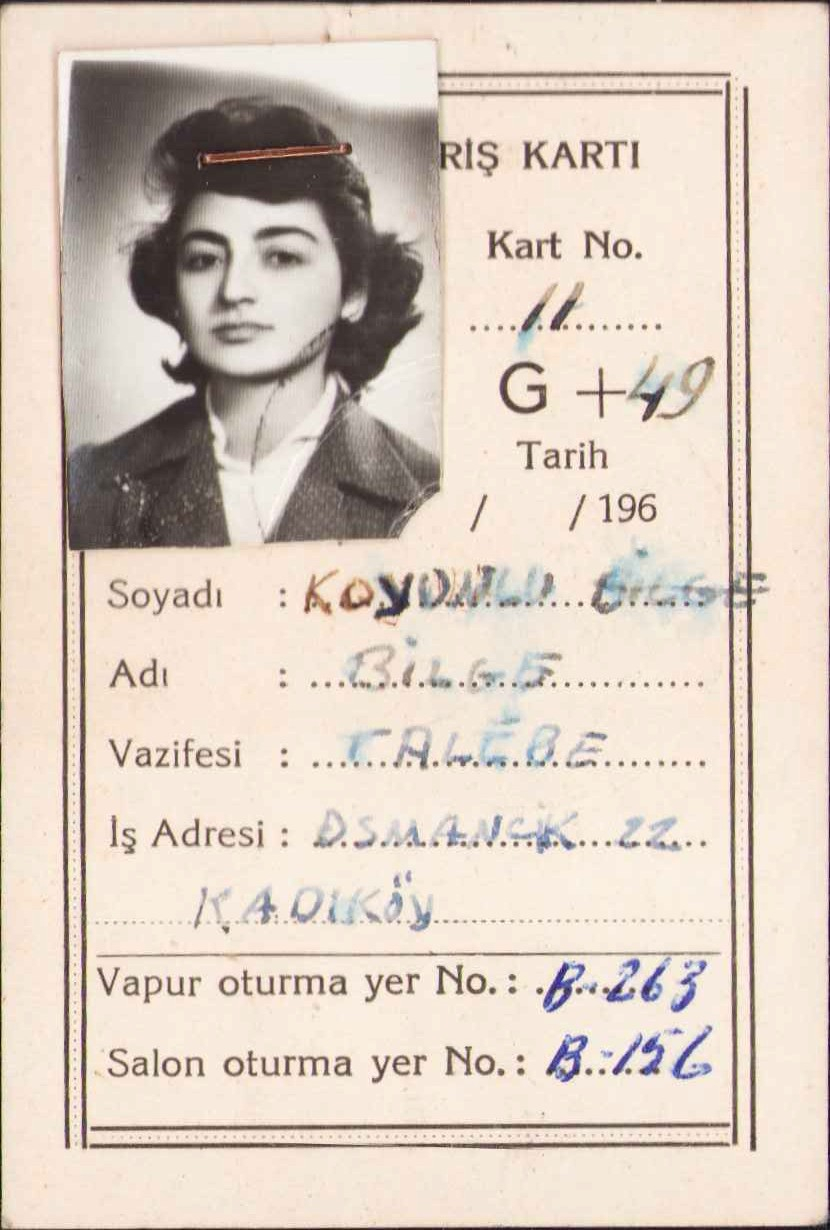 RİŞ KARTI
Kart No.
....11..........
G +49
Tarih
/ / 196
Soyadı : KOYUNLU BİLGE
Adı : BİLGE
Vazifesi : TALEBE
İş Adresi : OSMANCIK 22
KADIKÖY
Vapur oturma yer No. : B-263
Salon oturma yer No. : B-156